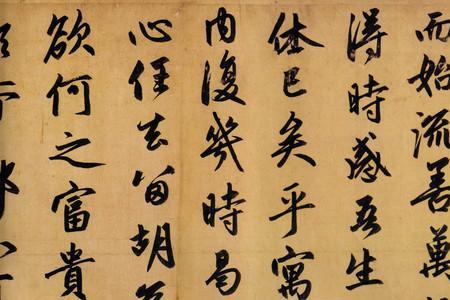 而始流善萬
得時感吾生
休已矣乎寓
内復幾時曷
心任去留胡
欲何之富貴